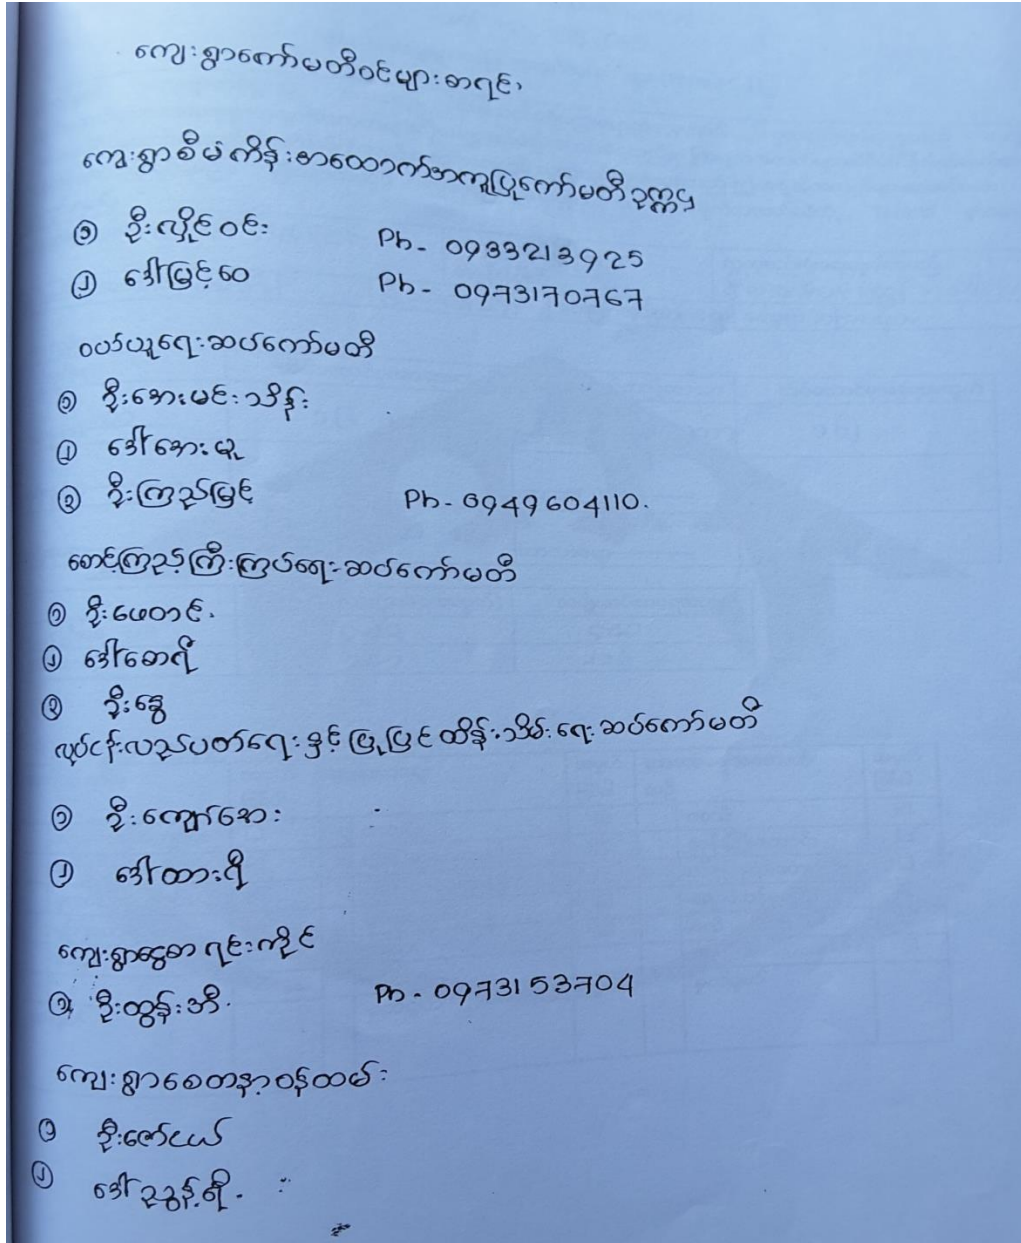 ကျေးရွာကော်မတီဝင်များစာရင်း
ကျေးရွာစီမံကိန်းစာထောက်အကူပြုကော်မတီဥက္ကဌ
၁ ဦးလှိုင်ဝင်း Ph- 0933213925
၂ ဒေါ်မြင့်ဝေ Ph- 0973170767
ဝယ်ယူရေးဆပ်ကော်မတီ
၁ ဦးအေးမင်းသိန်း
၂ ဒေါ်အေးမူ
၃ ဦးကြည်မြင့် Ph- 0949604110.
စောင့်ကြည့်ကြီးကြပ်ရေးဆပ်ကော်မတီ
၁ ဦးဖေတင်
၂ ဒေါ်စောရီ
၃ ဦးနွေ
လုပ်ငန်းလည်ပတ်ရေးနှင့်ပြုပြင်ထိန်းသိမ်းရေးဆပ်ကော်မတီ
၁ ဦးကျော်အေး
၂ ဒေါ်ထားရီ
ကျေးရွာငွေစာရင်းကိုင်
၁ ဦးထွန်းအိ Ph- 0973153704
ကျေးရွာစေတနာ့ဝန်ထမ်း
၁ ဦးဇော်ငယ်
၂ ဒေါ်ညွန့်ရီ